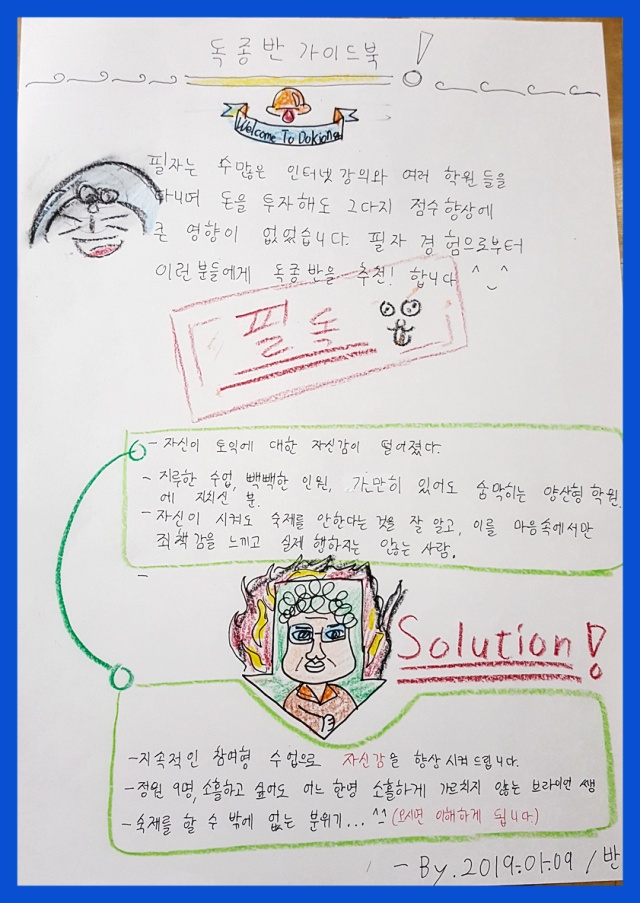 독종반 가이드북!
Welcome To Dokjong
필자는 수많은 인터넷강의와 여러 학원들을
다니며 돈을 투자해도 그다지 점수향상에
큰 영향이 없었습니다. 필자 경험으로부터
이런분들에게 독종반을 추천! 합니다 ^_^
필독
- 자신이 토익에 대한 자신감이 떨어졌다.
- 지루한 수업, 빽빽한 인원, 가만히 있어도 숨막히는 양산형 학원
에 지치신 분.
- 자신이 시켜도 숙제를 안한다는 것을 잘 알고, 이를 마음속에서만
죄책감을 느끼고 실제 행하지는 않는 사람.
-
Solution!
-지속적인 참여형 수업으로 자신감을 향상시켜드립니다.
-정원 9명, 소홀하고 싶어도 어느 한명 소홀하게 가르치지 않는 브라이언 쌤
-숙제를 할 수 밖에 없는 분위기... ^^ (오시면 이해하게 됩니다)
- By. 2019.01.09 / 반